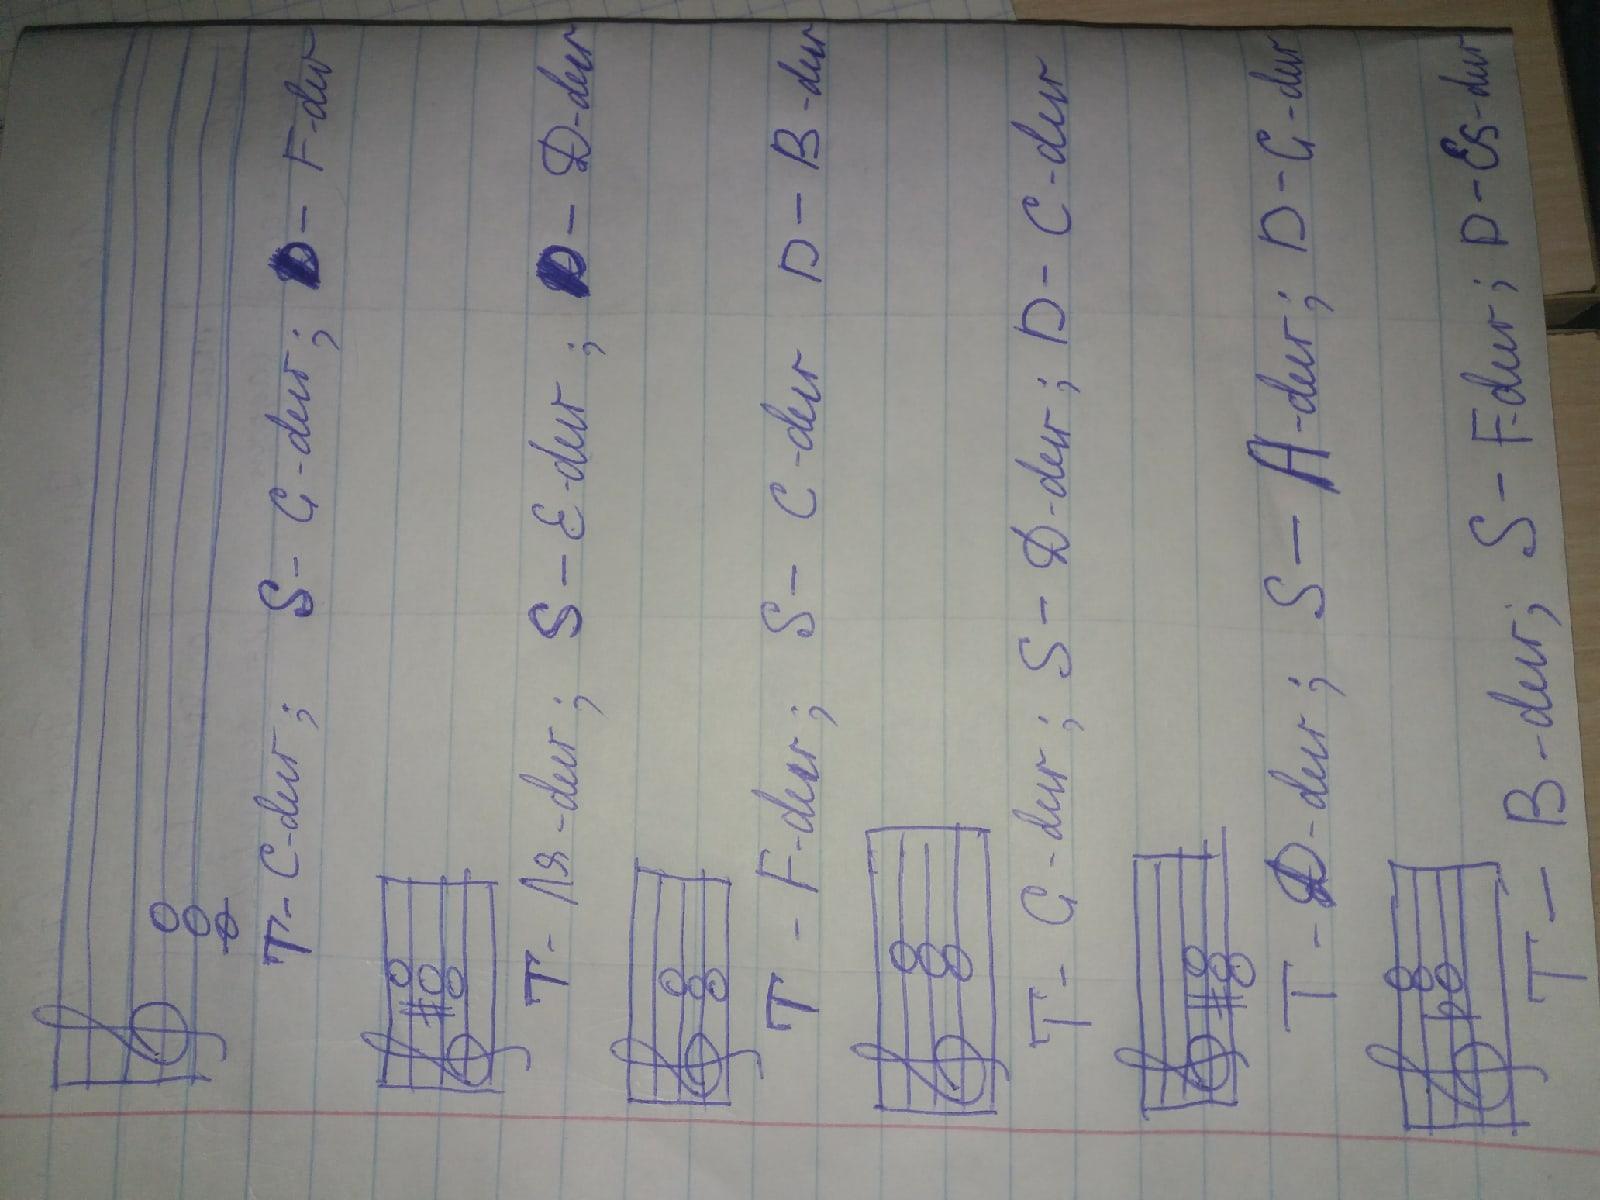 T - C-dur; S - G-dur; D - F-dur
T - Ля-dur; S - E-dur; D - D-dur
T - F-dur; S - C-dur D - B-dur
T - G-dur; S - D-dur; D - C-dur
T - D-dur; S - A-dur; D - G-dur
T - B-dur; S - F-dur; D - Es-dur